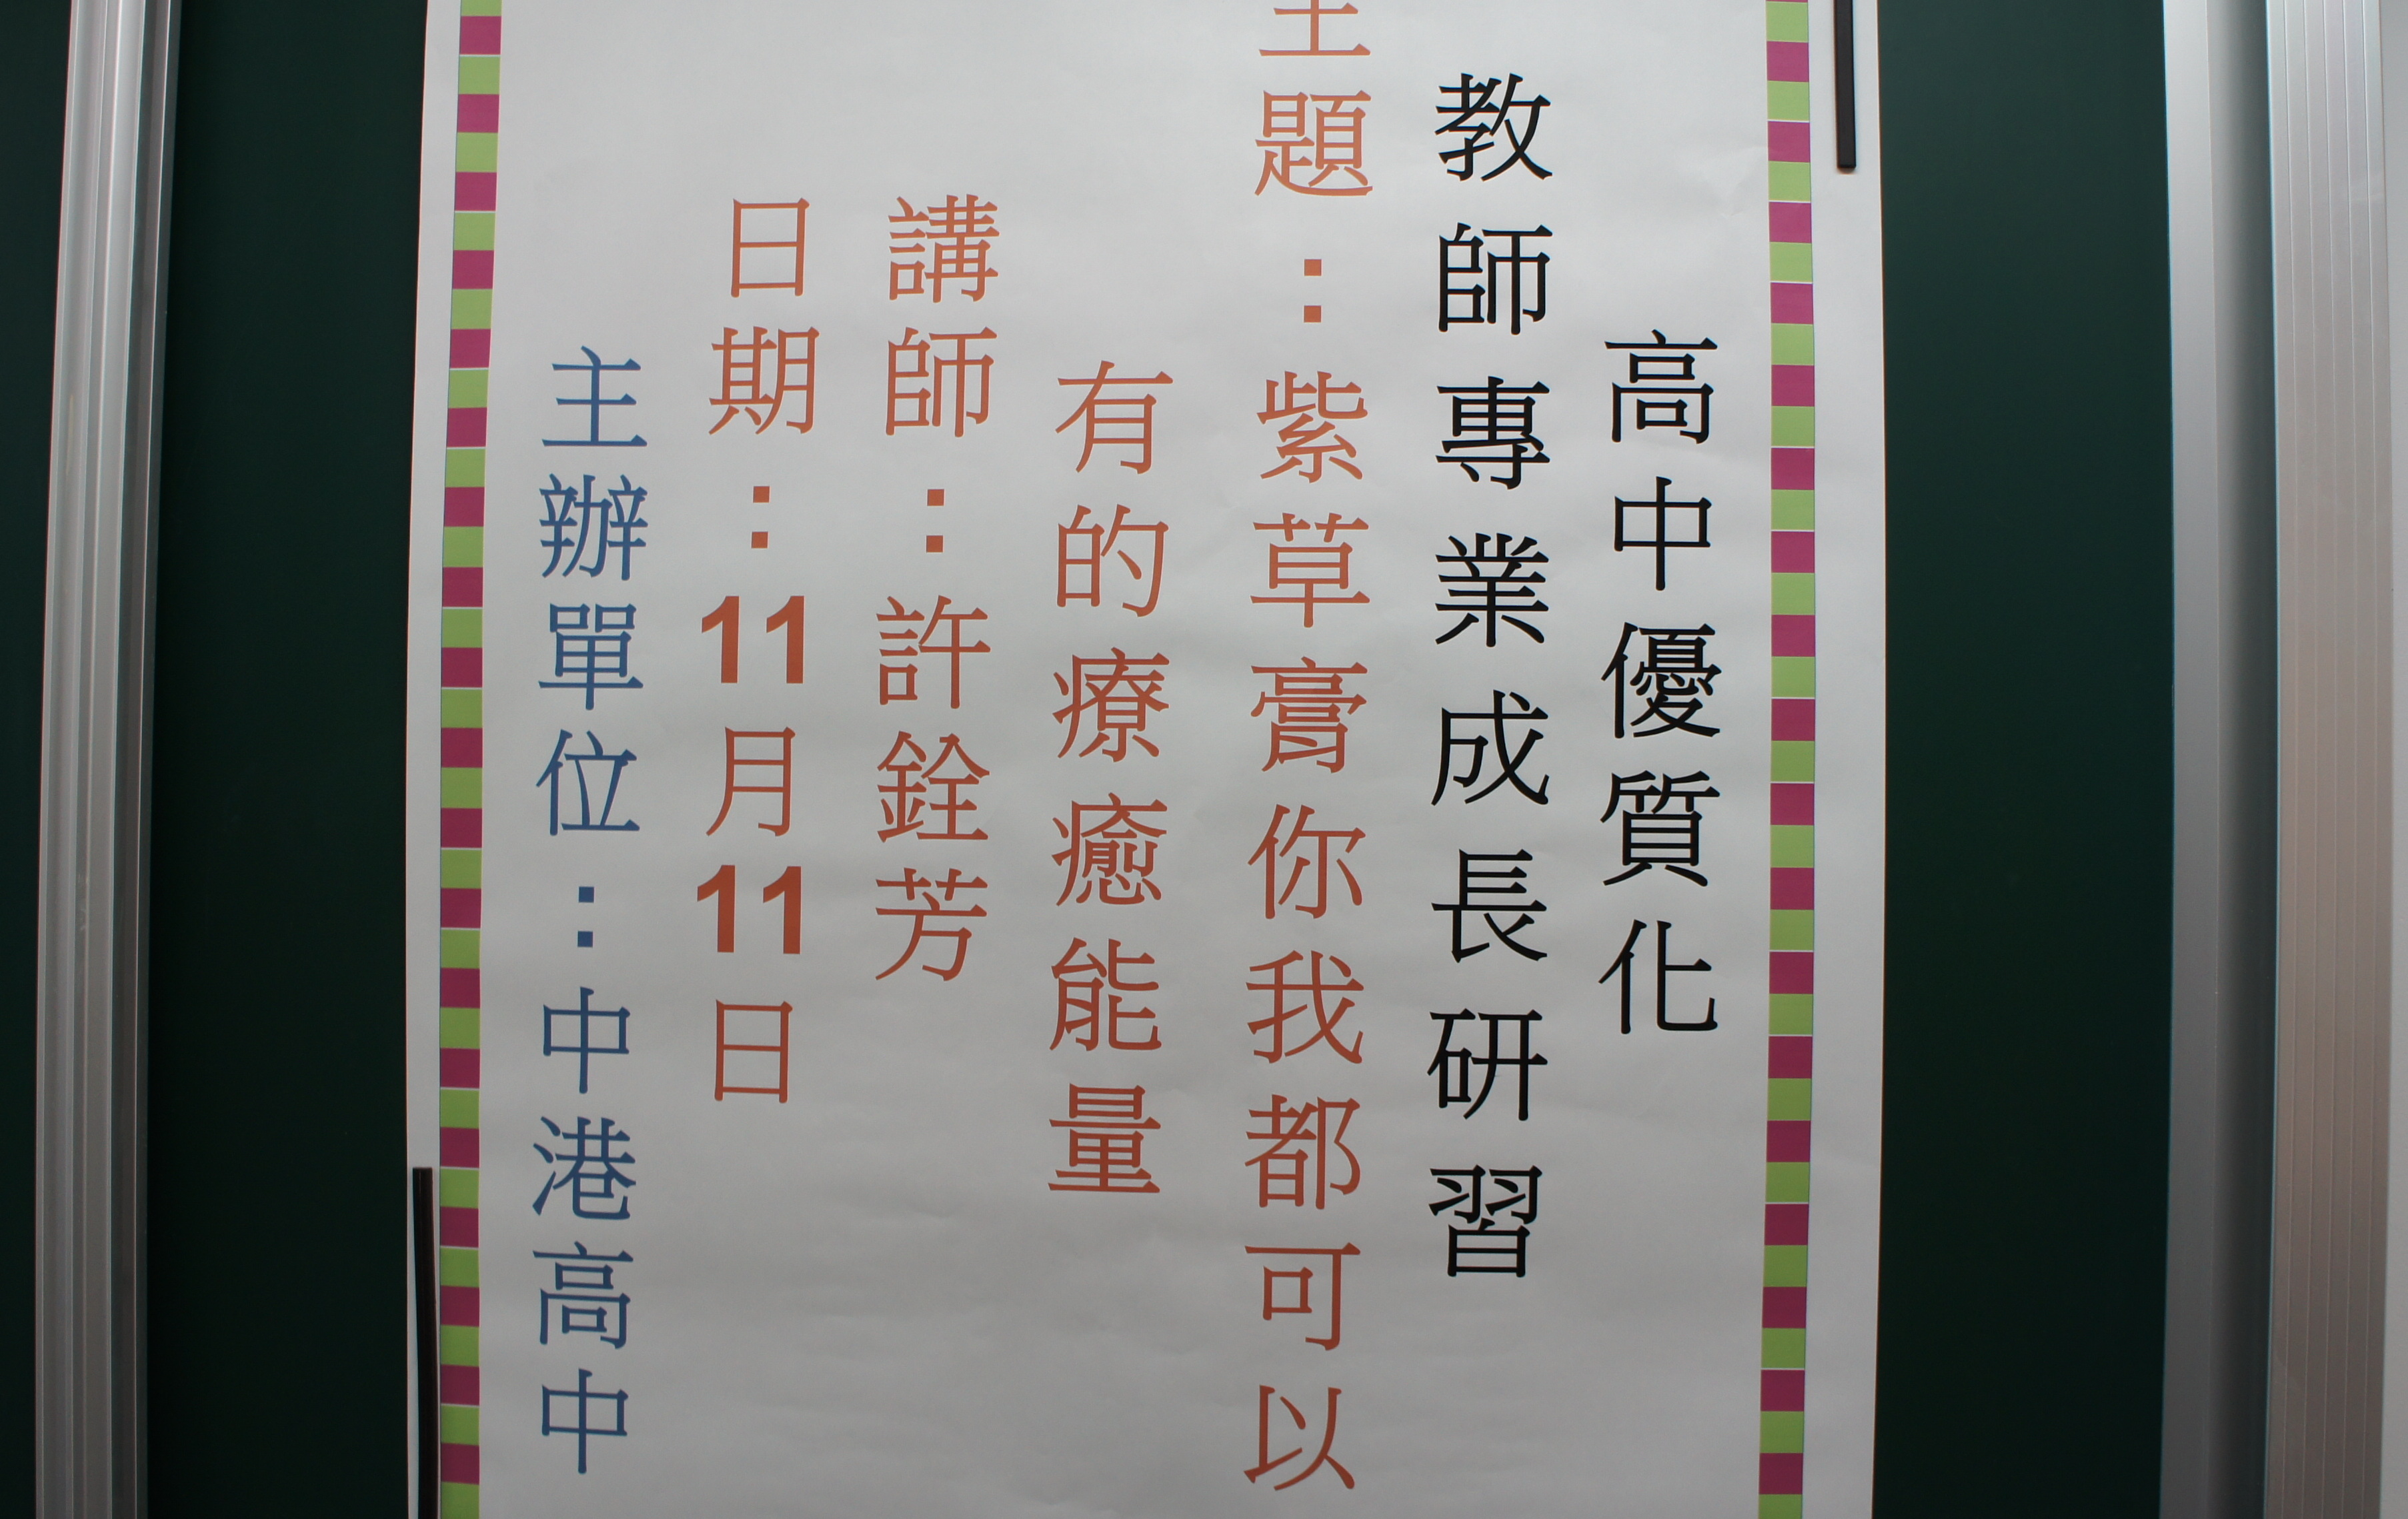 高中優質化
教師專業成長研習
主題：紫草膏你我都可以
有的療癒能量
講師：許銓芳
日期：11月11日
主辦單位：中港高中